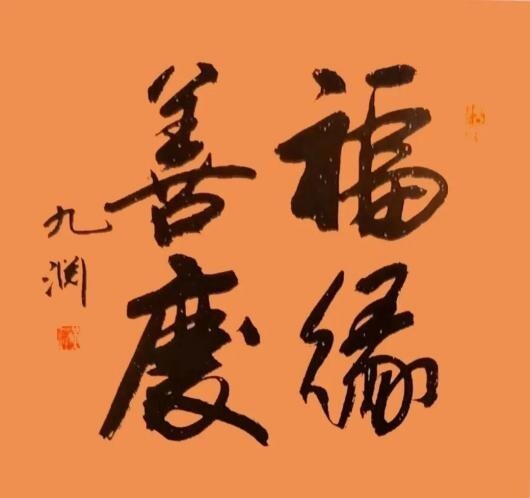 福緣
善慶
九渊